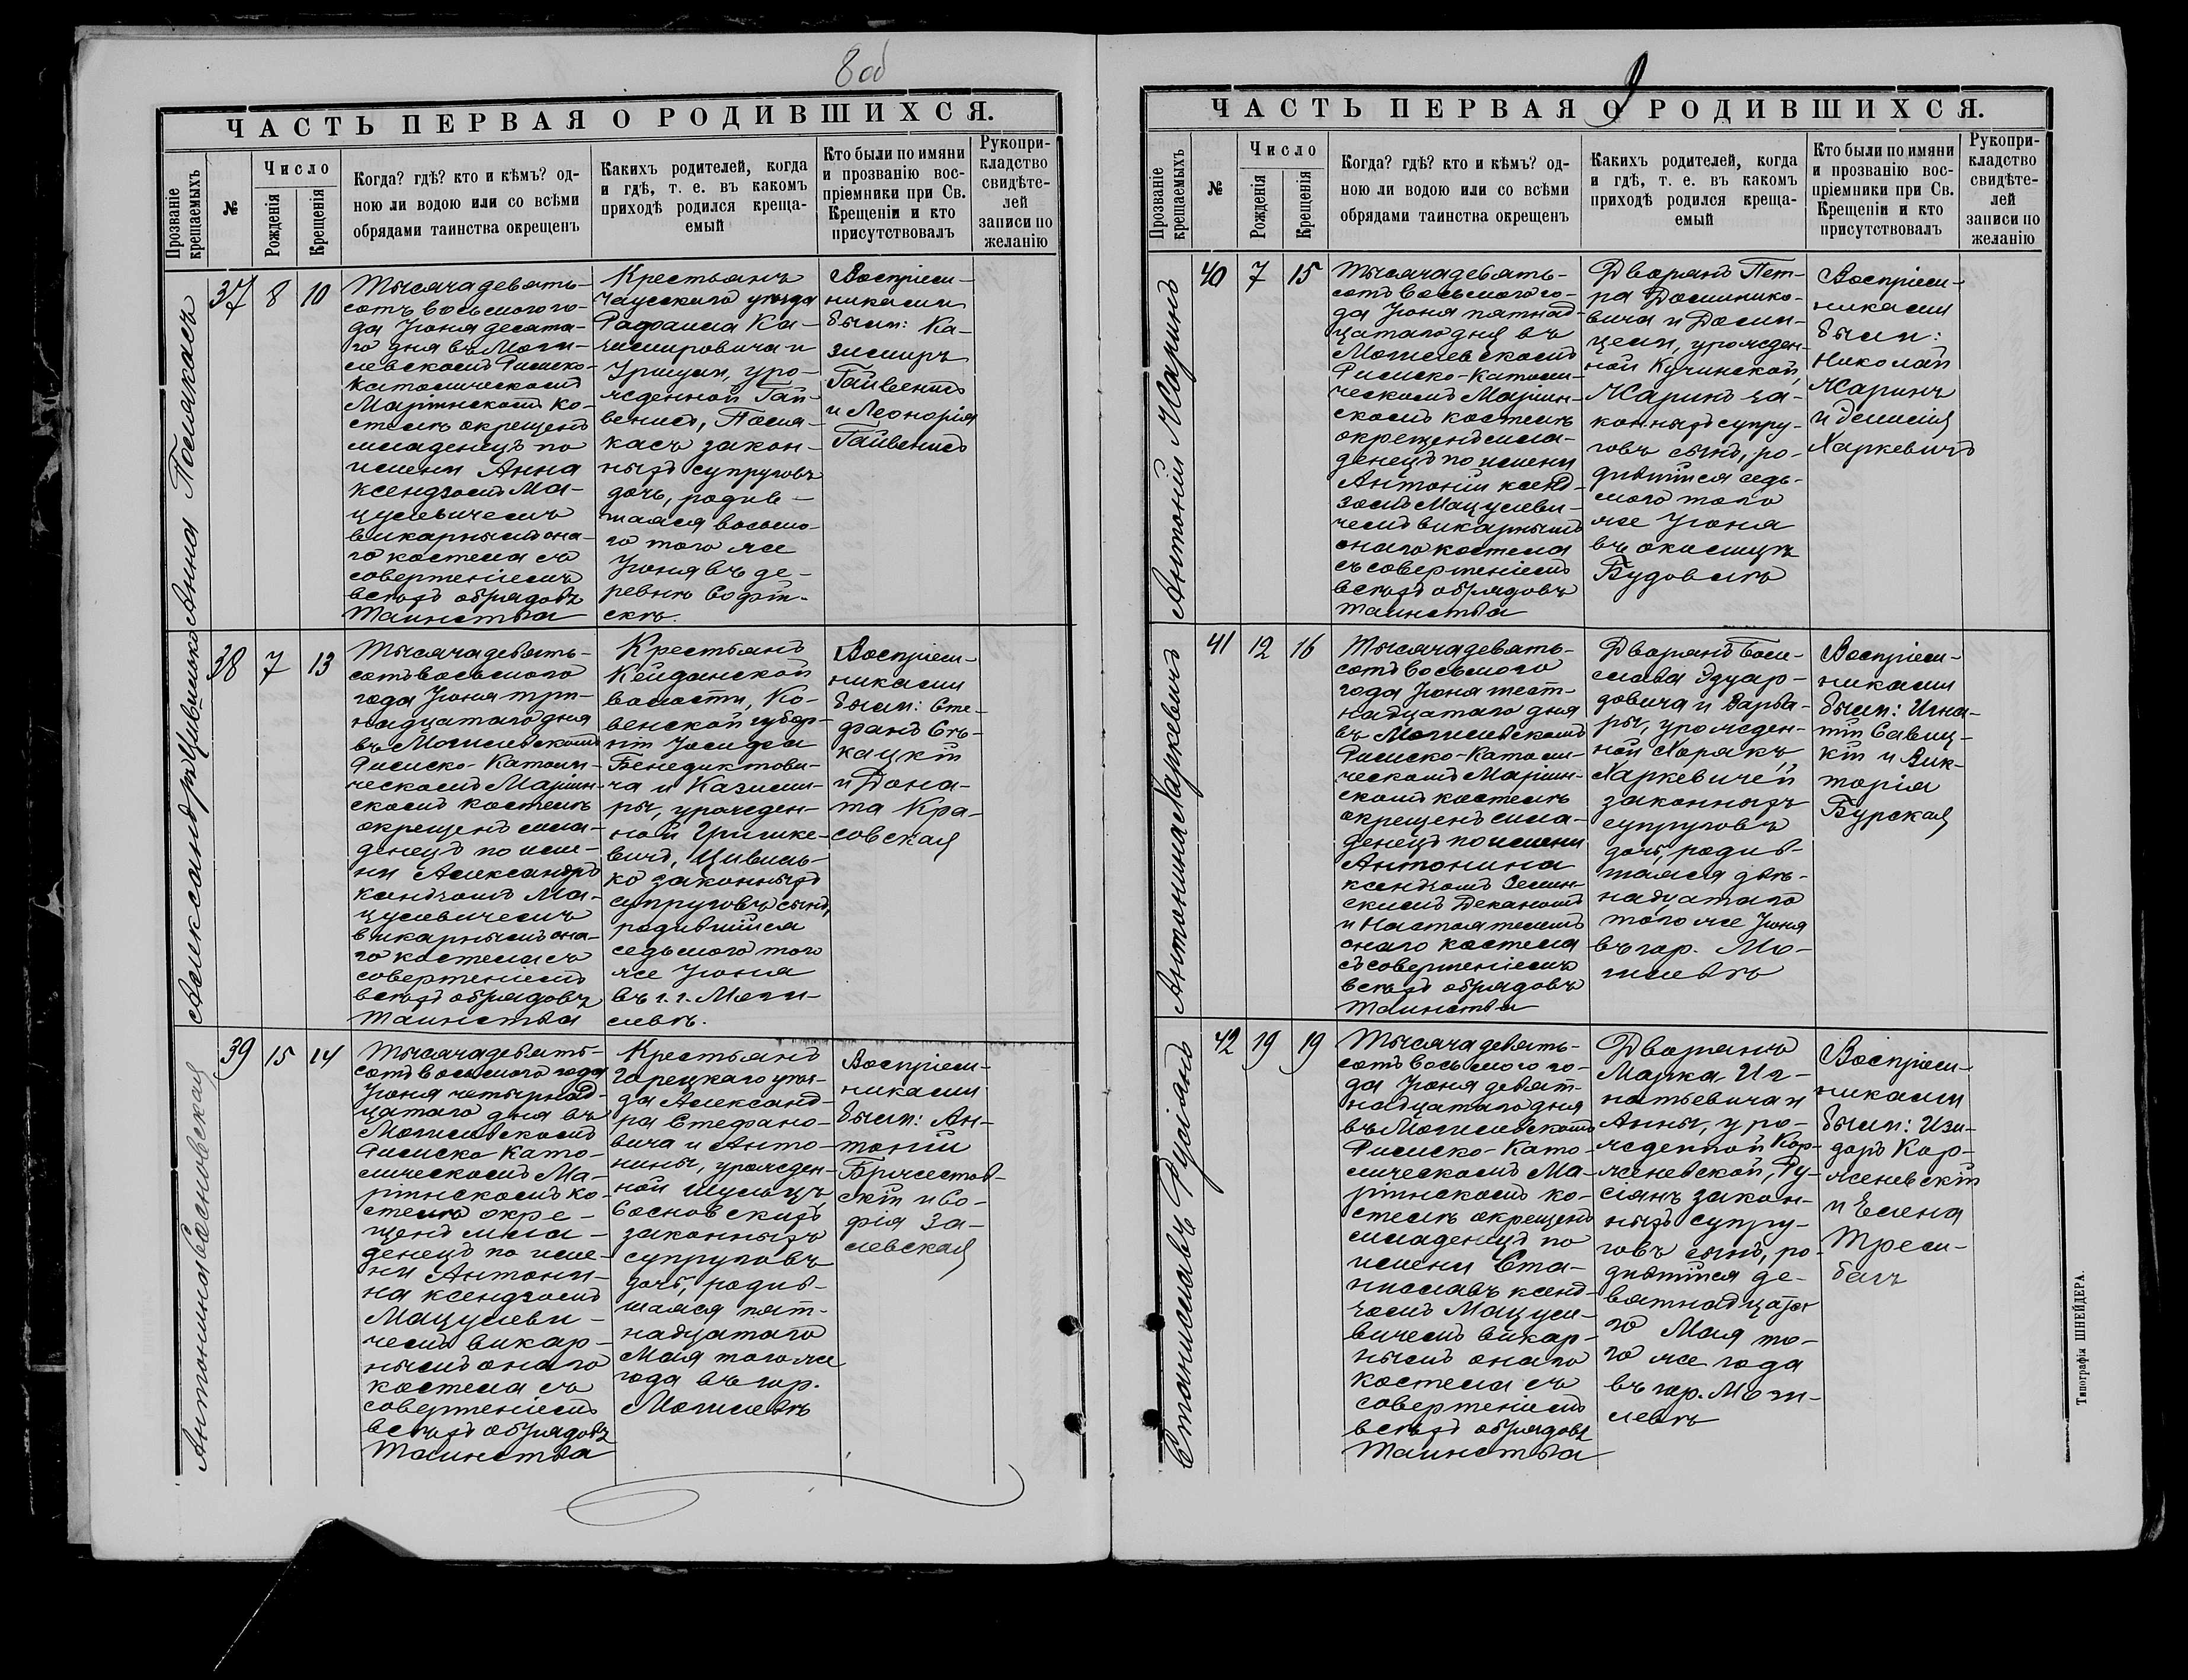 8 об
ЧАСТЬ ПЕРВАЯ О РОДИВШИХСЯ.
Прозваніе крещаемыхъ
№
Число
Рожденія
Крещенія
Когда? гдѣ? кто и кѣмъ? од-
ною ли водою или со всѣми
обрядами таинства окрещенъ
Какихъ родителей, когда
и гдѣ, т. е. въ какомъ
приходѣ родился креща-
емый
Кто были по имяни
и прозванію вос-
пріемники при Св.
Крещеніи и кто
присутствовалъ
Рукопри-
кладство
свидѣте-
лей
записи по
желанію
Анна Полякасъ
37
8
10
Тысяча девять-
сотъ восьмого го-
да Іюня десята-
го дня въ Моги-
левскомъ Римско-
Католическомъ
Маріинскомъ ко-
стелѣ окрещенъ
младенецъ по
имени Анна
ксендзомъ Ма-
цулевичемъ
викарнымъ она-
го костела съ
совершеніемъ
всѣхъ обрядовъ
Таинства
Крестьянъ
Чаусскаго уѣзда
Рафаила Ка-
зимировича и
Урщули, уро-
жденной Гай-
венисъ, Поля-
касъ закон-
ныхъ супруговъ
дочь, родив-
шаяся восьмо-
го того же
Іюня въ де-
ревнѣ
Воспріем-
никами
были: Ка-
зимиръ
Гайвенисъ
и Леонорія
Гайвенисъ
Александръ Цивилько
38
7
13
Тысяча девять-
сотъ восьмого
года Іюня три-
надцатаго дня
въ Могилевскомъ
Римско-Католи-
ческомъ Маріин-
скомъ костелѣ
окрещенъ мла-
денецъ по име-
ни Александръ
ксендзомъ Ма-
цулевичемъ
викарнымъ она-
го костела съ
совершеніемъ
всѣхъ обрядовъ
Таинства
Крестьянъ
Кейданской
волости, Ко-
венской губер-
ніи Іосифа
Бенедиктови-
ча и Казими-
ры, урожден-
ной Гришке-
вичъ, Цивиль-
ко законныхъ
супруговъ сынъ,
родившійся
седьмого того
же Іюня
въ г. г. Моги-
левѣ.
Воспріем-
никами
были: Сте-
фанъ Сѣ-
кацкій
и Дона-
та Кра-
совская
Антонина Сосновская
39
15
14
Тысяча девять-
сотъ восьмого года
Іюня четырнад-
цатаго дня въ
Могилевскомъ
Римско-Като-
лическомъ Ма-
ріинскомъ ко-
стелѣ окре-
щенъ мла-
денецъ по име-
ни Антони-
на ксендзомъ
Мацулеви-
чемъ викар-
нымъ онаго
костела съ
совершеніемъ
всѣхъ обрядовъ
Таинства
Крестьянъ
Горецкаго уѣз-
да Александ-
ра Стефано-
вича и Анто-
нины, урожден-
ной Шульцъ
Сосновскихъ
законныхъ
супруговъ
дочь, родив-
шаяся пят-
надцатаго
Мая того же
года въ гор.
Могилевѣ
Воспріем-
никами
были: Ан-
тоній
Бржестов-
скій и Со-
фія За-
левская
9
ЧАСТЬ ПЕРВАЯ О РОДИВШИХСЯ.
Прозваніе крещаемыхъ
№
Число
Рожденія
Крещенія
Когда? гдѣ? кто и кѣмъ? од-
ною ли водою или со всѣми
обрядами таинства окрещенъ
Какихъ родителей, когда
и гдѣ, т. е. въ какомъ
приходѣ родился креща-
емый
Кто были по имяни
и прозванію вос-
пріемники при Св.
Крещеніи и кто
присутствовалъ
Рукопри-
кладство
свидѣте-
лей
записи по
желанію
Антоній Жаринъ
40
7
15
Тысяча девять-
сотъ восьмого го-
да Іюня пятнад-
цатаго дня въ
Могилевскомъ
Римско-Католи-
ческомъ Маріин-
скомъ костелѣ
окрещенъ мла-
денецъ по имени
Антоній ксенд-
зомъ Мацулеви-
чемъ викарнымъ
онаго костела
съ совершеніемъ
всѣхъ обрядовъ
Таинства
Дворянъ Пет-
ра Доминико-
вича и Доми-
цели, урожден-
ной Кучинской,
Жаринъ за-
конныхъ супру-
говъ сынъ, ро-
дившійся седь-
мого того
же Іюня
въ околицѣ
Будовлѣ
Воспріем-
никами
были:
Николай
Жаринъ
и Эмилія
Харкевичъ
Антонина Харкевичъ
41
12
16
Тысяча девять-
сотъ восьмого
года Іюня шест-
надцатаго дня
въ Могилевскомъ
Римско-Католи-
ческомъ Маріин-
скомъ костелѣ
окрещенъ мла-
денецъ по имени
Антонина
ксендзомъ Зелин-
скимъ Деканомъ
и Настоятелемъ
онаго костела
съ совершеніемъ
всѣхъ обрядовъ
Таинства
Дворянъ Боле-
слава Эдуар-
довича и Варва-
ры, урожден-
ной Хорякъ,
Харкевичей
законныхъ
супруговъ
дочь, родив-
шаяся двѣ-
надцатаго
того же Іюня
въ гор. Мо-
гилевѣ
Воспріем-
никами
были: Игна-
тій Савиц-
кій и Вик-
торія
Бурская
Станиславъ Русіянъ
42
19
19
Тысяча девять-
сотъ восьмого го-
да Іюня девят-
надцатаго дня
въ Могилевскомъ
Римско-Като-
лическомъ Ма-
ріинскомъ ко-
стелѣ окрещенъ
младенецъ по
имени Ста-
ниславъ ксенд-
зомъ Мацуле-
вичемъ викар-
нымъ онаго
костела съ
совершеніемъ
всѣхъ обрядовъ
Таинства
Дворянъ
Марка Иг-
натьевича и
Анны, уро-
жденной Кор-
женевской, Ру-
сіянъ закон-
ныхъ супру-
говъ сынъ, ро-
дившійся де-
вятнадцата-
го Мая то-
го же года
въ гор. Моги-
левѣ
Воспріем-
никами
были: Изи-
доръ Кор-
женевскій
и Елена
Трем-
бачъ
Типографія ШНЕЙДЕРА.